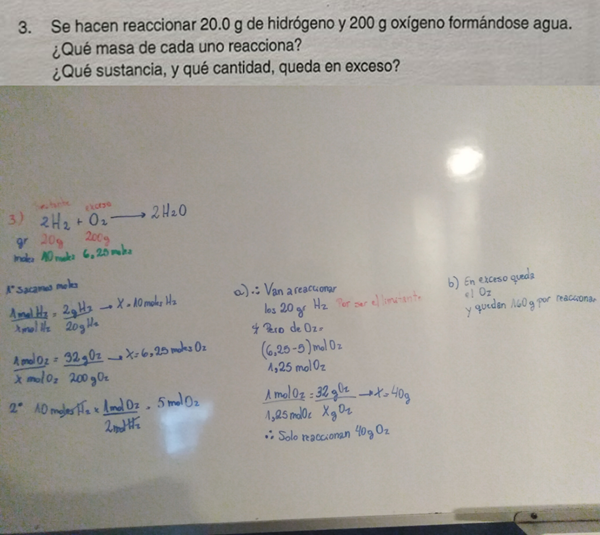 3. Se hacen reaccionar 20.0 g de hidrógeno y 200 g oxígeno formándose agua.
¿Qué masa de cada uno reacciona?
¿Qué sustancia, y qué cantidad, queda en exceso?
limitante exceso
3) 2H₂ + O₂ → 2H₂O
gr 20g 200g
moles 10 moles 6,25 moles
1° Sacamos moles
1 mol H₂ / x mol H₂ = 2g H₂ / 20g H₂ → X = 10 moles H₂
1 mol O₂ / x mol O₂ = 32g O₂ / 200g O₂ → X = 6,25 moles O₂
2° 10 moles H₂ x 1 mol O₂ / 2 mol H₂ = 5 mol O₂
a) ∴ Van a reaccionar
los 20 gr H₂ Por ser el limitante
y Pero de O₂
(6,25-5) mol O₂
1,25 mol O₂
1 mol O₂ / 1,25 mol O₂ = 32g O₂ / X g O₂ → X = 40g
∴ Solo reaccionan 40g O₂
b) En exceso queda
el O₂
y quedan 160g por reaccionar